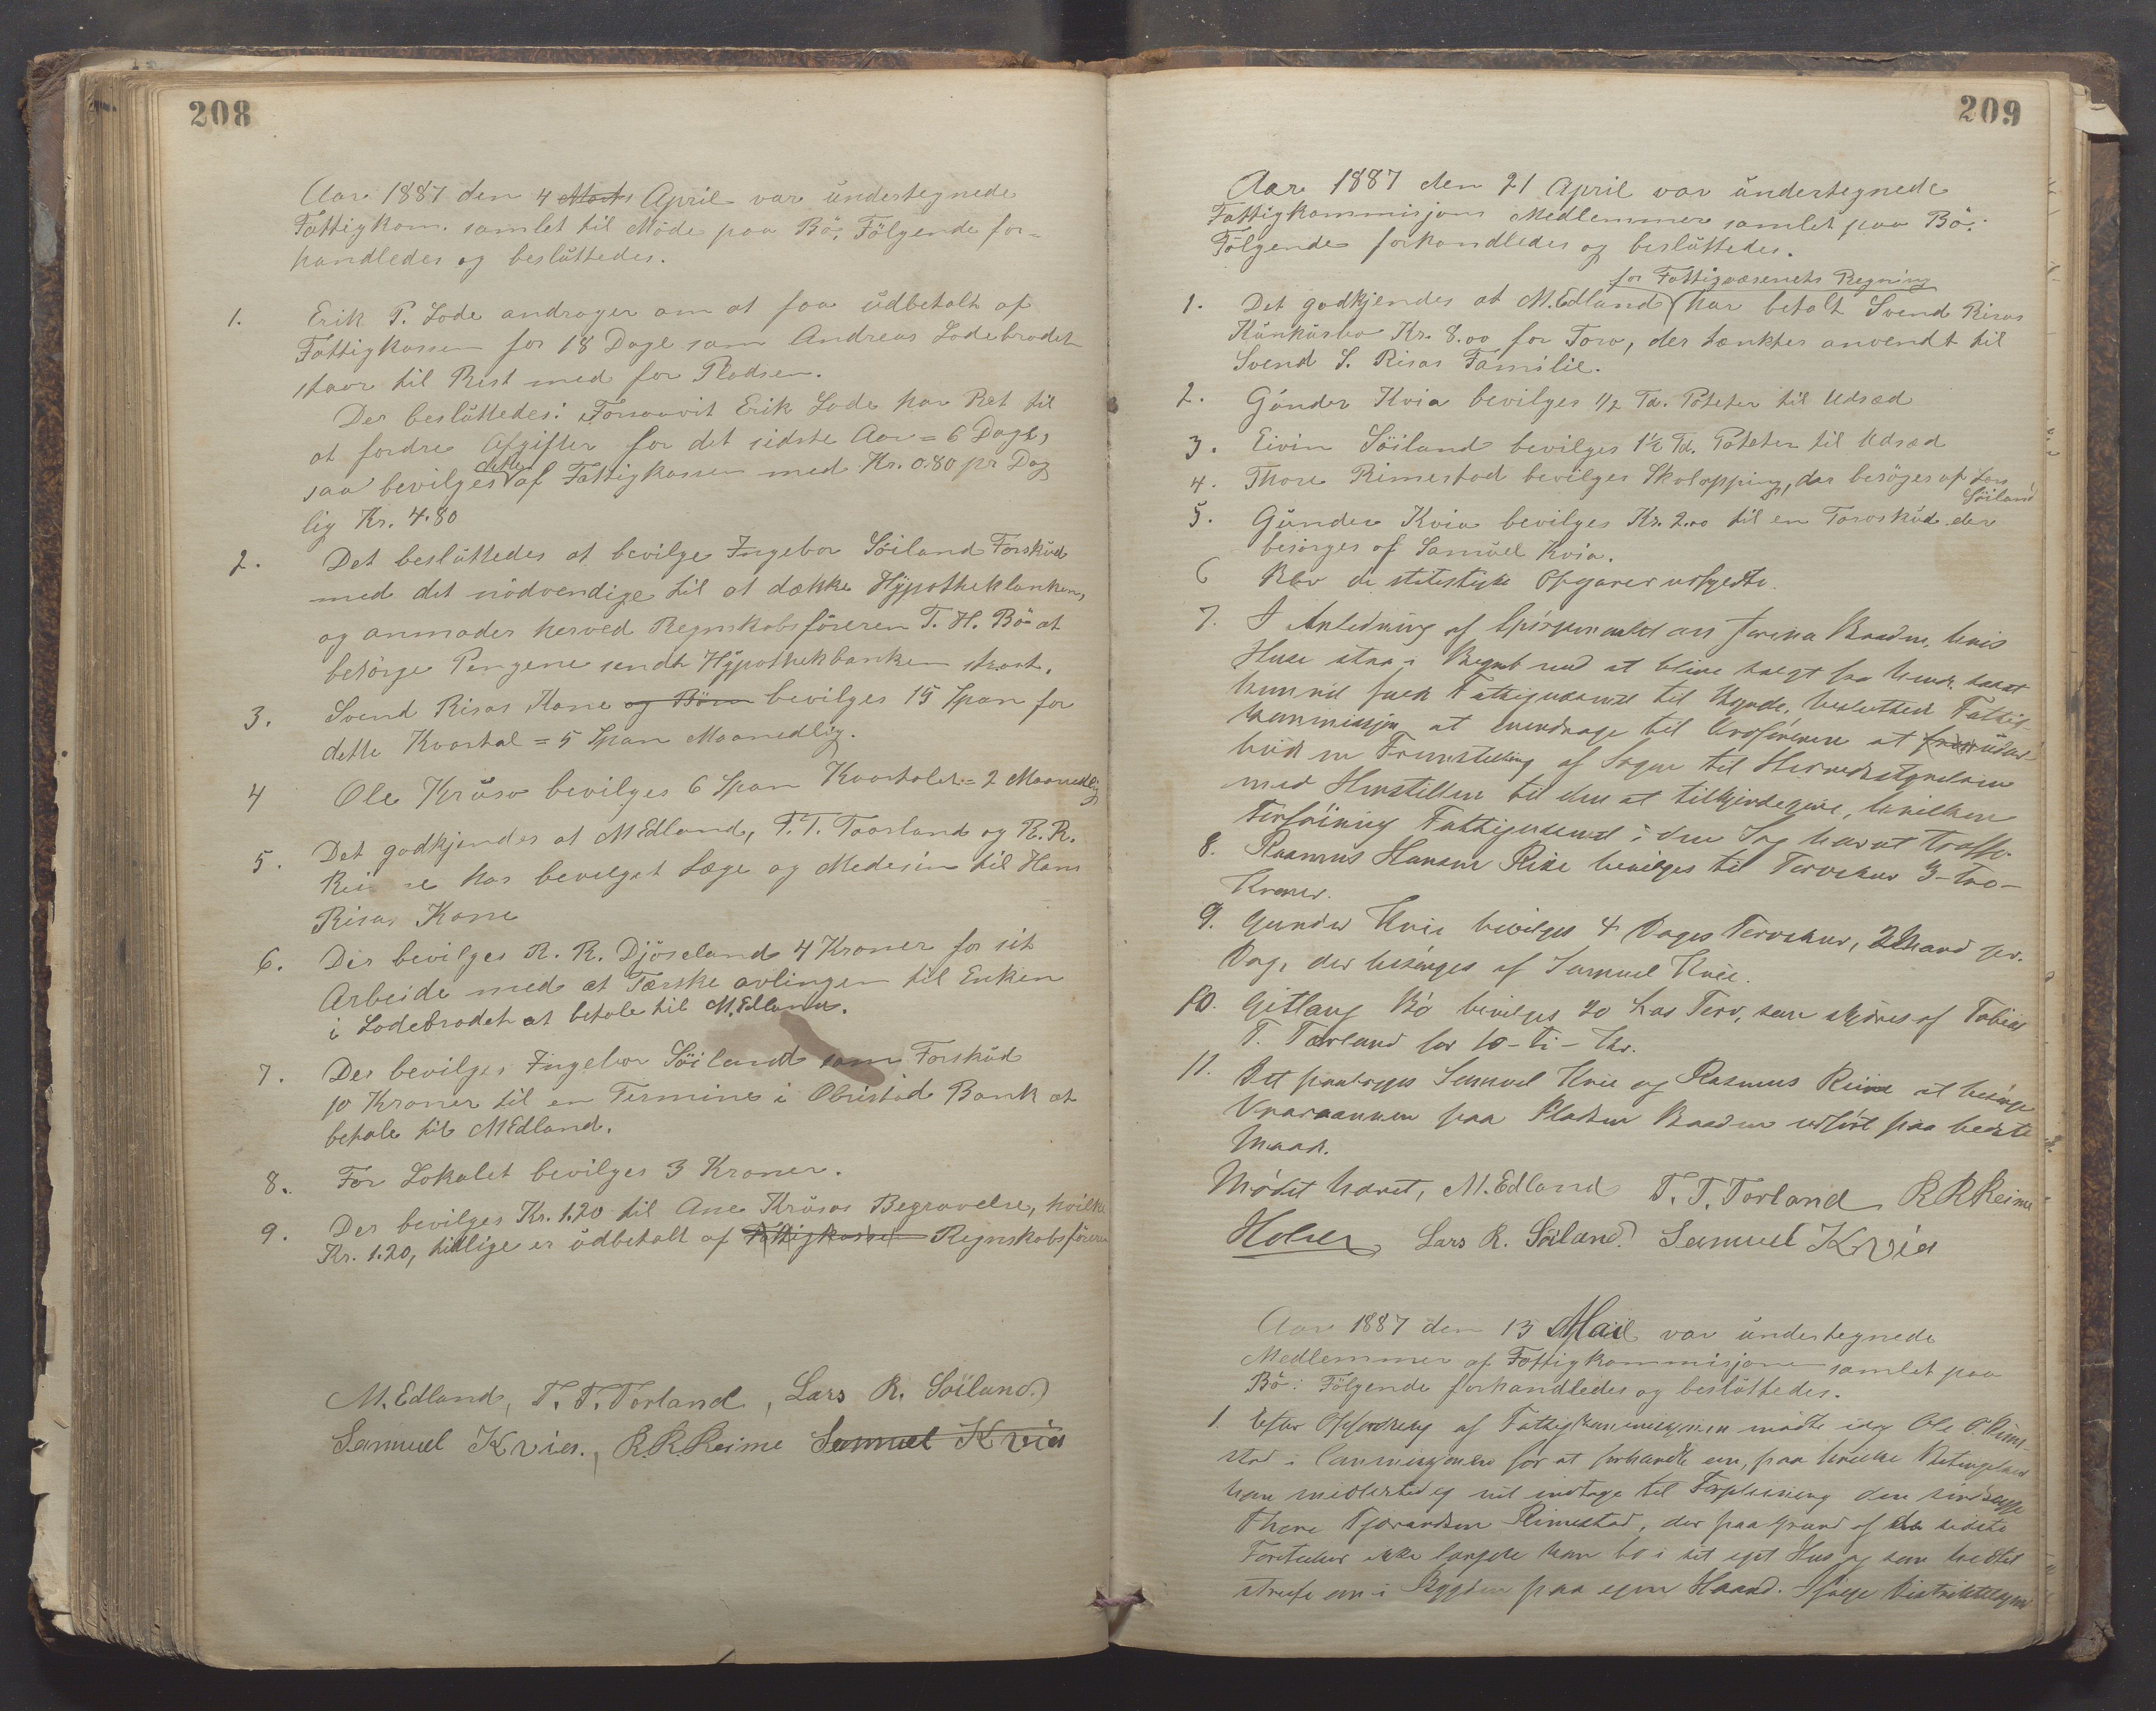 208
Aar 1887 den 4 Marts April var undertegnede
Fattigkom. samlet til Möde paa Bö. Fölgende for=
handledes og besluttedes.
1. Erik P. Lode andrager om at faa udbetalt af
Fattigkassen for 18 Dage som Andreas Lodebrodet
staar til Rest med for Pladsen.
Der besluttedes: Forsaavit Erik Lode har Ret til
at fordre Afgifter for det sidste Aar = 6 Dage,
saa bevilges dette af Fattigkassen med Kr. 0.80 pr Dag
lig Kr. 4.80
2. Det besluttedes at bevilge Ingebor Söiland Forskud
med det nödvendige til at dække Hypotheklanken,
og anmoder herved Regnskabsföreren T. H. Bö at
besörge Pengene sendt Hypothekbanken strax.
3. Svend Risas Kone og Börn bevilges 15 Span for
dette Kvartal = 5 Span Maanedlig.
4 Ole Kruse bevilges 6 Span Kvartalet = 2 Maanedlig
5. Det godkjendes at M Edland, T. T. Taarland og R. R.
Reime har bevilget Læge og Medesin til Hans
Risas Kone
6. Der bevilges R. R. Djöseland 4 Kroner for sit
Arbeide med at Tærske avlingen til Enken
i Lodebrodet at betale til M. Edland.
7. Der bevilges Ingebor Söiland som Forskud
10 Kroner til en Termine i Obrestad Bank at
betale til M Edland.
8. For Lokalet bevilges 3 Kroner.
9. Der bevilges Kr. 1.20 til Ane Krusas Begravelse, hvilke
Kr. 1.20, tillige er udbetalt af Fattigkassen Regnskabsföreren
M. Edland, T. T. Torland, Lars R. Söiland
Samuel Kvia, R R Reime Samuel Kvia
209
Aar 1887 den 21 April var undertegnede
Fattigkommisjons Medlemmer samlet paa Bö.
Fölgende forhandledes og besluttedes.
for Fattigvæsenets Regning
1. Det godkjendes at M. Edland har betalt Svend Risas
Kr. 8.00 for Torv, der tænktes anvendt til
Svend S. Risas Familie.
2. Gunder Kvia bevilges 1/2 Td. Poteter til Udsæd
3. Eivin Söiland bevilges 1 1/2 Td. Poteter til Udsæd
4. Thore Rimestad bevilges Skolapping, der besörges af Lars
Söiland
5. Gunder Kvia bevilges Kr. 2.00 til en Torvskud der
besörges af Samuel Kvia.
6 Blev de statistiske Opgaver udfyldte.
7. I Anledning af Spörgsmaalet om Serina Braaden, hvis
Huse staa i Begreb med at blive solgt fra hende, samt
hun vil falde Fattigvæsenet til Byrde, besluttede Fattig-
kommissjon at overdrage til Ordföreren at frem udar-
beide en Fremstilling af Sagen til Herredsstyrelsen
med Henstillen til den at tilkjendegive, hvilken
Forföining Fattigvæsenet i den Sag har at træffe.
8. Rasmus Hansen Rise bevilges til Torvskur 3 - tre -
Kroner.
9. Gunder Kvie bevilges 4 Dages Torvskur, 2 Mand pr.
Dag, der besörges af Samuel Kvie.
10. Gitlaug Bö bevilges 20 Las Torv, som skjæres af Tobias
T. Torland for 10 - ti - Kr.
11. Det paalægges Samuel Kvie og Rasmus Reime at besörge
Vaaraannen paa Pladsen Braaden udfört paa bedste
Maade.
Mödet hævet, M. Edland T. T. Torland R R Reime
Holver Lars R. Söiland. Samuel Kvia
Aar 1887 den 13 Mai var undertegnede
Medlemmer af Fattigkommisjonen samlet paa
Bö: Fölgende forhandledes og besluttedes.
1. Efter Opfordring af Fattigkommissjonen mödte idag Ole O. Rime-
stad i Commissjonen for at forhandle om, paa hvilke Betingelser
han midlertidig vil indtage til Forpleining den sindssyge
Thore Tjerandsen Rimestad, der paa Grund af de sidste
ikke længere kan bo i sit eget Hus og som hredtil
streife om i Bygden paa egen Haand. Ifölge Distriktslægens